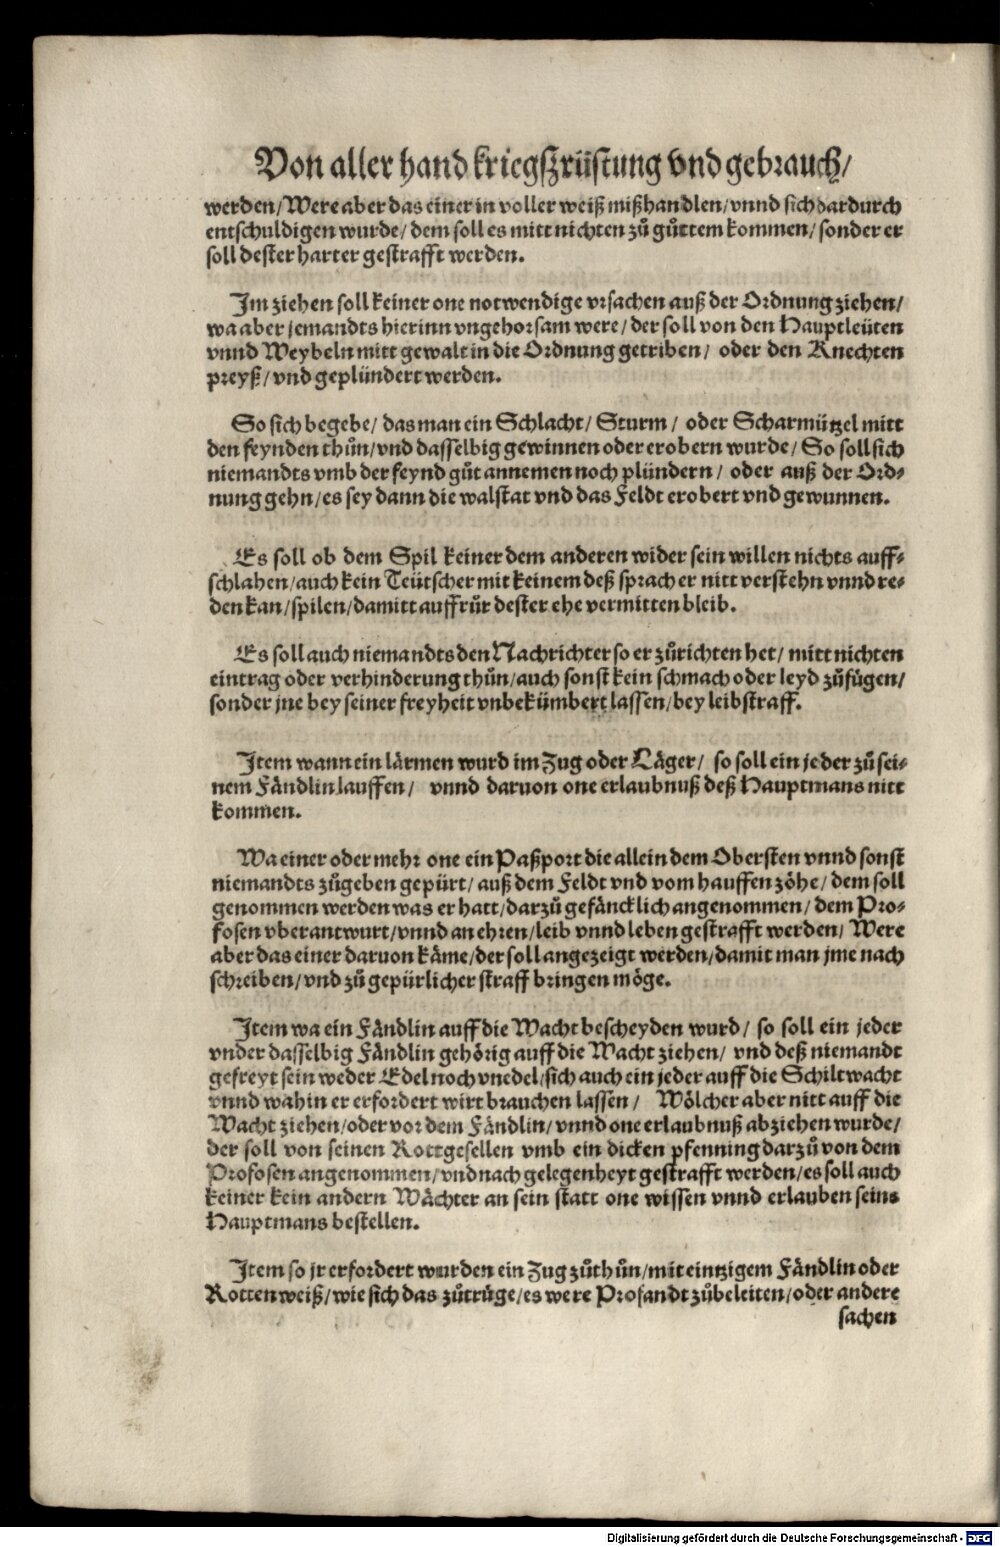 Von aller hand kriegßrüstung vnd gebrauch/
werden/Were aber das einer in voller weiß mißhandlen/vnnd sich dardurch
entschuldigen wurde/dem soll es mitt nichten zů gůttem kommen/sonder er
soll dester harter gestrafft werden.
Im ziehen soll keiner one notwendige vrsachen auß der Ordnung ziehen/
wa aber jemandts hierinn vngehorsam were/der soll von den Hauptleüten
vnnd Weybeln mitt gewalt in die Ordnung getriben/ oder den Knechten
preyß/vnd geplündert werden.
So sich begebe/das man ein Schlacht/Sturm/ oder Scharmützel mitt
den feynden thůn/vnd dasselbig gewinnen oder erobern wurde/So soll sich
niemandts vmb der feynd gůt annemen noch plündern/ oder auß der Ord⸗
nung gehn/es sey dann die walstat vnd das Feldt erobert vnd gewunnen.
Es soll ob dem Spil keiner dem anderen wider sein willen nichts auff⸗
schlahen/auch kein Teütscher mit keinem deß sprach er nitt verstehn vnnd re⸗
den kan/spilen/damitt auffrůr dester ehe vermitten bleib.
Es soll auch niemandts den Nachrichter so er zůrichten het/ mitt nichten
eintrag oder verhinderung thůn/auch sonst kein schmach oder leyd zůfügen/
sonder jne bey seiner freyheit vnbekümbert lassen/bey leibstraff.
Item wann ein lärmen wurd im Zug oder Läger/ so soll ein jeder zů sei⸗
nem Fändlin lauffen/ vnnd daruon one erlaubnuß deß Hauptmans nitt
kommen.
Wa einer oder mehr one ein Paßport die allein dem Obersten vnnd sonst
niemandts zůgeben gepürt/auß dem Feldt vnd vom hauffen zöhe/dem soll
genommen werden was er hatt/darzů gefäncklich angenommen/dem Pro⸗
fosen vberantwurt/vnnd an ehren/leib vnnd leben gestrafft werden/Were
aber das einer daruon käme/der soll angezeigt werden/damit man jme nach
schreiben/vnd zů gepürlicher straff bringen möge.
Item wa ein Fändlin auff die Wacht bescheyden wurd/ so soll ein jeder
vnder dasselbig Fändlin gehörig auff die Wacht ziehen/ vnd deß niemandt
gefreyt sein weder Edel noch vnedel/sich auch ein jeder auff die Schiltwacht
vnnd wahin er erfordert wirt brauchen lassen/ Wölcher aber nitt auff die
Wacht ziehen/oder vor dem Fändlin/vnnd one erlaubnuß abziehen wurde/
der soll von seinen Rottgesellen vmb ein dicken pfenning darzů von dem
Profosen angenommen/vnd nach gelegenheyt gestrafft werden/es soll auch
keiner kein andern Wächter an sein statt one wissen vnnd erlauben seins
Hauptmans bestellen.
Item so jr erfordert wurden ein Zug zůthůn/mit eintzigem Fändlin oder
Rottenweiß/wie sich das zůtrüge/es were Profandt zůbeleiten/oder andere
sachen
Digitalisierung gefördert durch die Deutsche Forschungsgemeinschaft - DFG